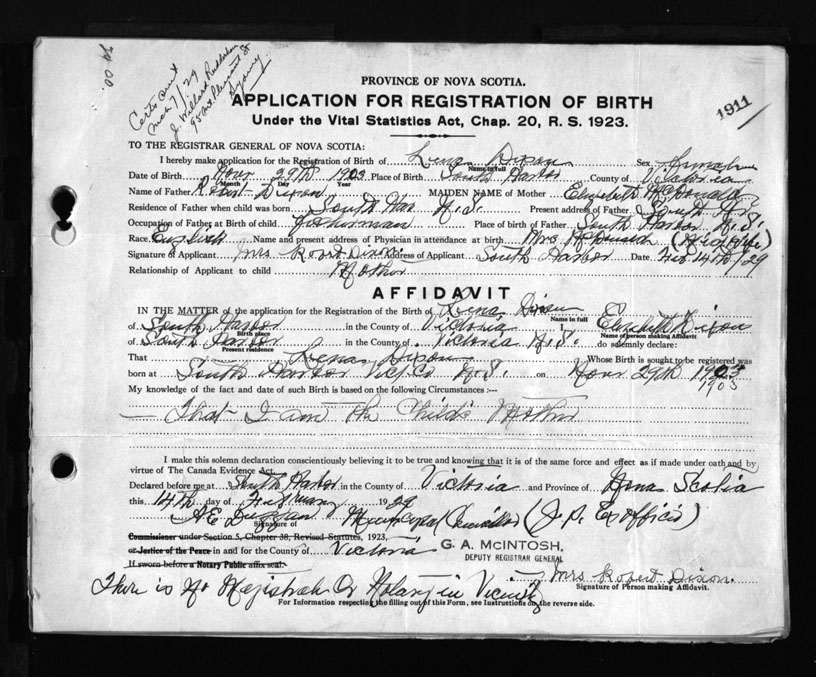 30.00
Certs sent
Mar 7/29
J. Willard
95 Pleasant St
Sydney.
PROVINCE OF NOVA SCOTIA.
APPLICATION FOR REGISTRATION OF BIRTH
1911
Under the Vital Statistics Act, Chap. 20, R. S. 1923.
TO THE REGISTRAR GENERAL OF NOVA SCOTIA:
I hereby make application for the Registration of Birth of Lena Dixon Sex Female
Name in full
Date of Birth Nov 29th 1903 Place of Birth South Harbor County of Victoria
Month Day Year
Name of Father Robert Dixon MAIDEN NAME of Mother Elizabeth McDonald
Residence of Father when child was born South Har N.S. Present address of Father South
Occupation of Father at Birth of child Fisherman Place of birth of Father South Harbor N.S.
Race English Name and present address of Physician in attendance at birth Mrs McDonald (Midwife)
Signature of Applicant Mrs Robert Dixon Address of Applicant South Harbor Date Feb 14th/29
Relationship of Applicant to child Mother
AFFIDAVIT
IN THE MATTER of the application for the Registration of the Birth of Lena Dixon
Name in full
of South Harbor in the County of Victoria Elizabeth Dixon
Birth place Name of person making Affidavit
of South Harbor in the County of Victoria N.S. do solemnly declare:
Present residence
That Lena Dixon Whose Birth is sought to be registered was
born at South Harbor Vict Co N.S. on Nov 29th 1903
1903
My knowledge of the fact and date of such Birth is based on the following Circumstances:—
That I am the Child's Mother
I make this solemn declaration conscientiously believing it to be true and knowing that it is of the same force and effect as if made under oath and by
virtue of The Canada Evidence Act.
Declared before me at South Harbor in the County of Victoria and Province of Nova Scotia
this 14th day of February 1929
A E Duggan Municipal Councillor (J. P. Ex Officio)
Signature of
Commissioner under Section 5, Chapter 38, Revised Statutes, 1923,
or Justice of the Peace in and for the County of Victoria
G. A. McINTOSH,
DEPUTY REGISTRAR GENERAL
If sworn before a Notary Public affix seal.
Mrs Robert Dixon.
Signature of Person making Affidavit.
There is No Magistrate Or Notary in Vicinity
For Information respecting the filling out of this Form, see Instructions on the reverse side.